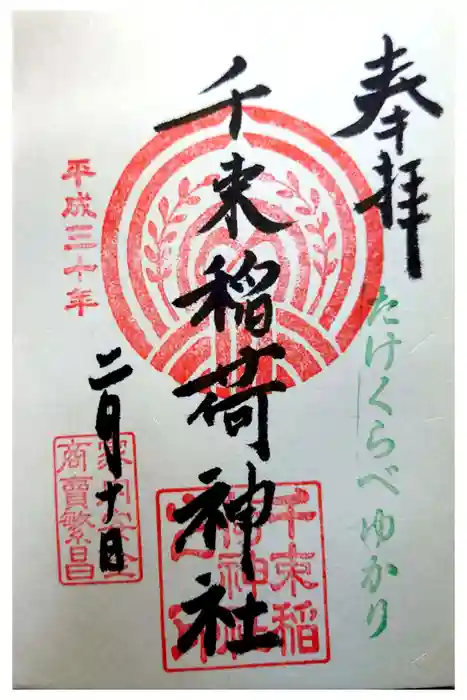 奉拝
たけくらべ ゆかり
千束稲荷神社
千束稲
荷神社
平成三十年
二月十日
家内安全
商賣繁昌